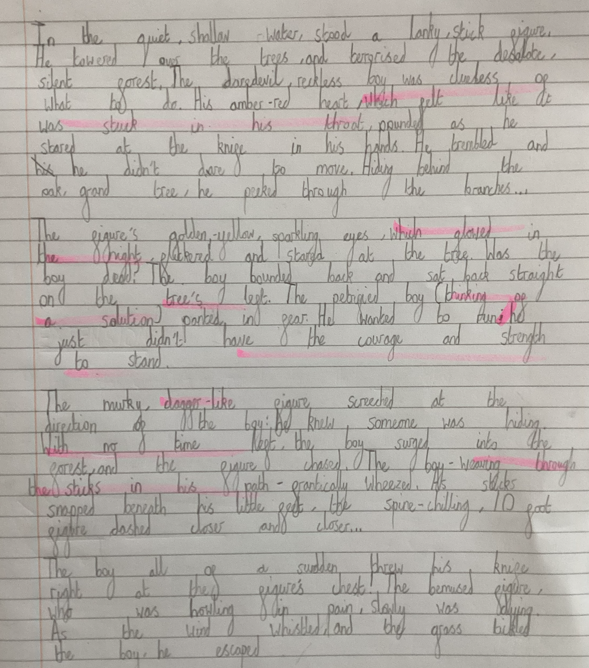 In the quiet, shallow water, stood a lanky, stick figure.
He towered over the trees and terrorised the desolate,
silent forest. The daredevil, reckless boy was clueless of
what to do. His amber-red heart, which felt like it
was stuck in his throat, pounded as he
stared at the knife in his hands. He trembled and
he didn't dare to move. Hiding behind the
oak, grand tree, he peeked through the branches...
The figure's golden-yellow, sparkling eyes, which glowed in
the night, flickered and stared at the tree. Was the
boy dead? The boy bounded back and sat back straight
on the tree's left. The petrified boy (thinking of
a solution) panted in fear. He wanted to run; he
just didn't have the courage and strength
to stand.
The murky, dagger-like figure screeched at the
direction of the boy: he knew someone was hiding.
With no time left, the boy surged into the
forest, and the figure chased. The boy - weaving through
the sticks in his path - frantically wheezed. As sticks
snapped beneath his little feet, the spine-chilling, 10 foot
figure dashed closer and closer...
The boy all of a sudden threw his knife
right at the figure's chest. The bemused figure,
who was howling in pain, slowly was dying.
As the wind whistled, and the grass tickled
the boy, he escaped